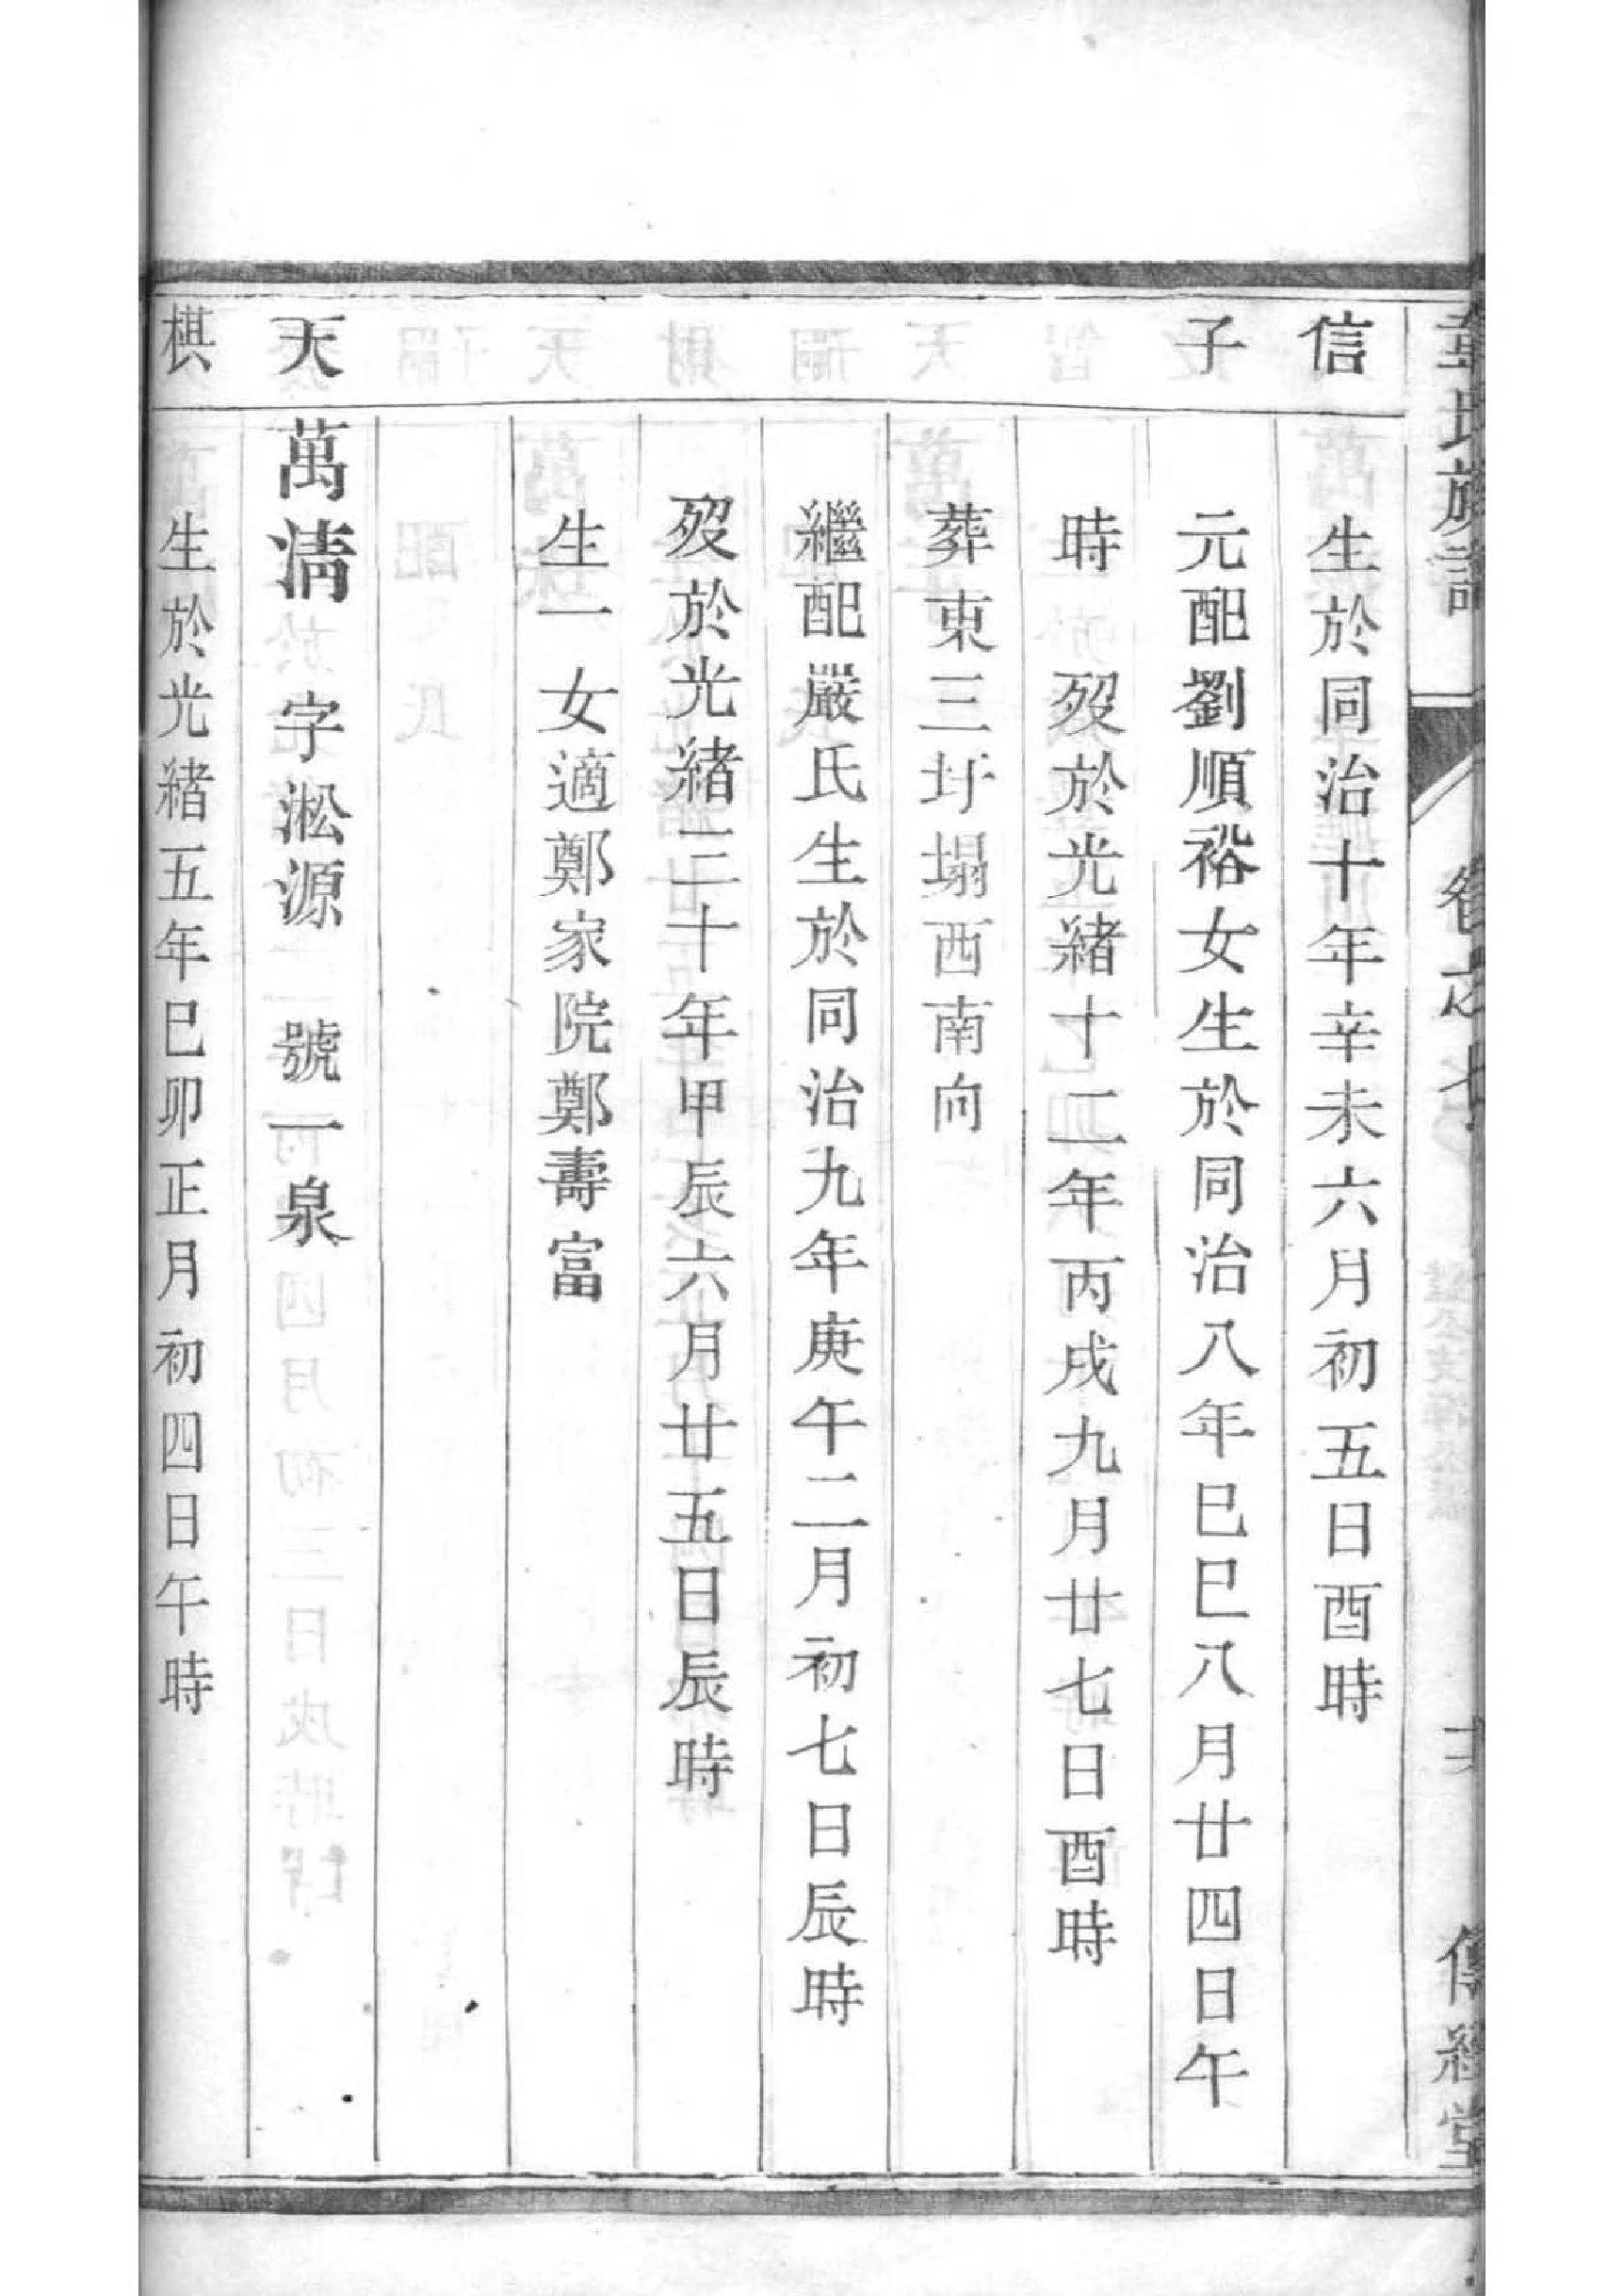 章氏族譜 卷之七 傳經堂
信 生於同治十年辛未六月初五日酉時
子 元配劉順裕女生於同治八年巳巳八月廿四日午
時 歿於光緒十二年丙戌九月廿七日酉時
葬東三圩塌西南向
繼配嚴氏生於同治九年庚午二月初七日辰時
歿於光緒三十年甲辰六月廿五日辰時
生一 女適鄭家院鄭壽富
天 萬清 字淞源 號一泉
棋 生於光緒五年巳卯正月初四日午時